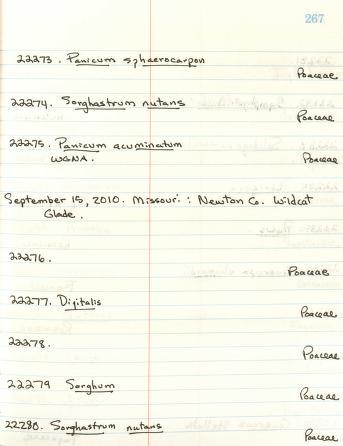 267
22273. Panicum sphaerocarpon
Poaceae
22274. Sorghastrum nutans
Poaceae
22275. Panicum acuminatum
WGNA. Poaceae
September 15, 2010. Missouri: Newton Co. Wildcat
Glade.
22276.
Poaceae
22277. Digitalis
Poaceae
22278.
Poaceae
22279 Sorghum
Poaceae
22280. Sorghastrum nutans
Poaceae